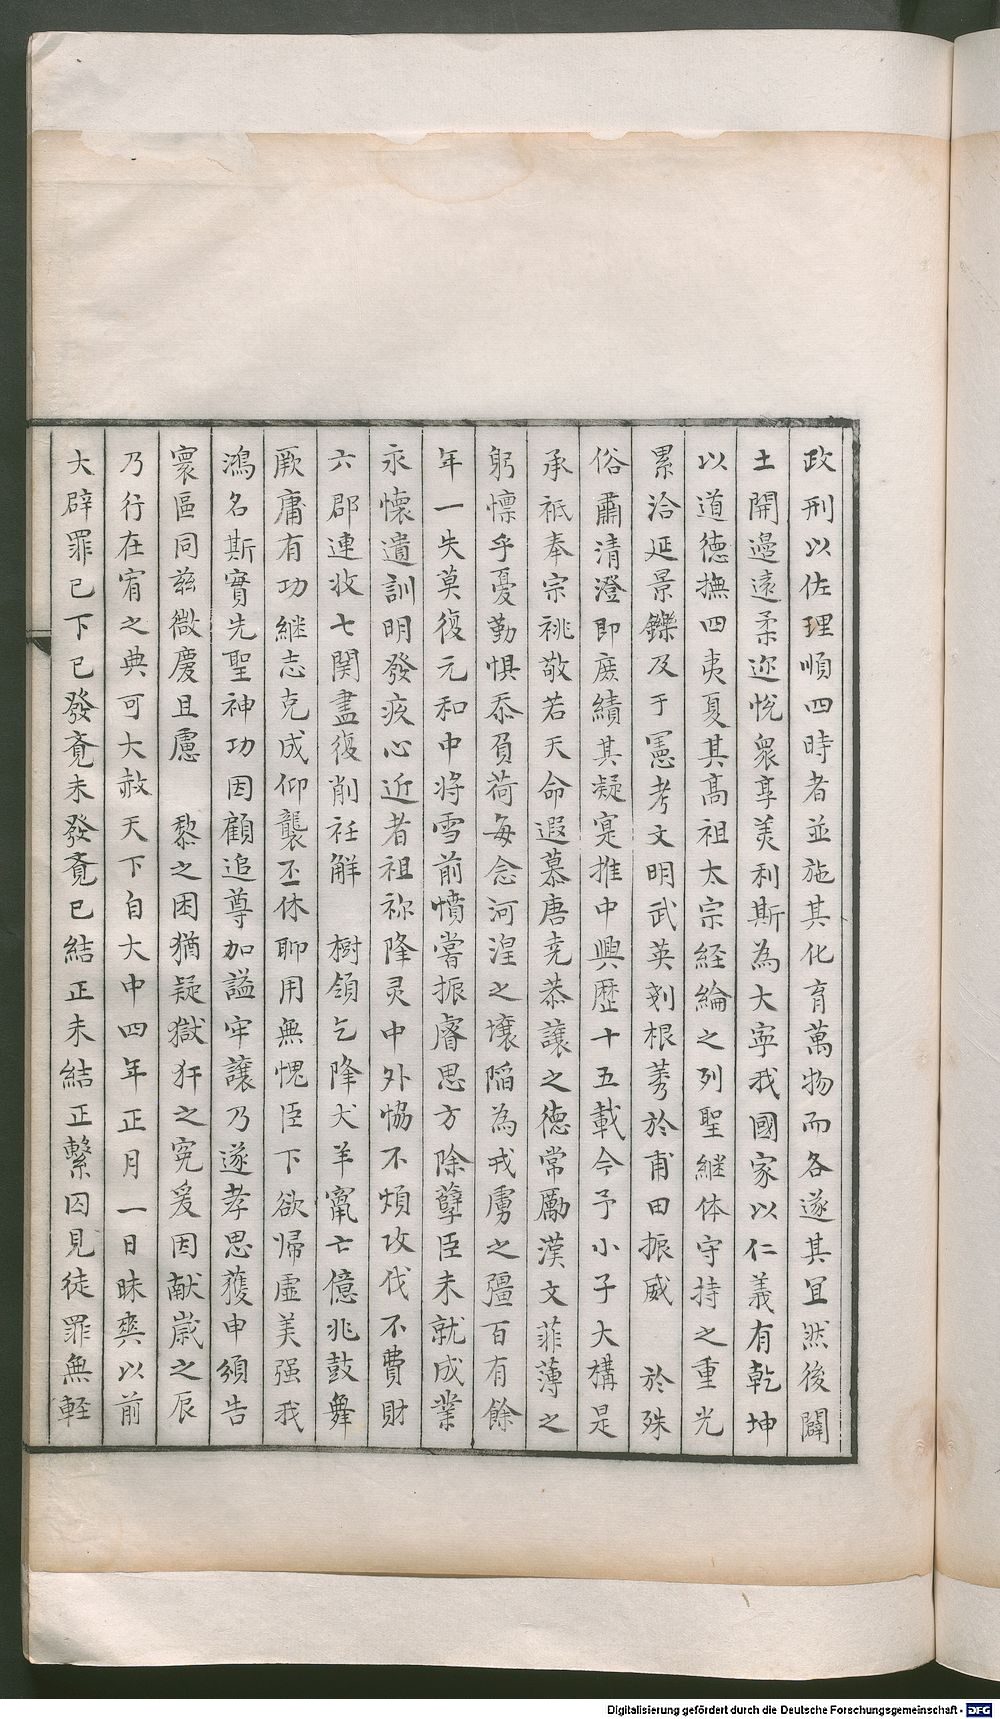 政刑以佐理順四時者並施其化育萬物而各遂其冝然後闢
土開邉遠柔迩悅衆享羙利斯為大寜我國家以仁義有乾坤
以道德撫四夷夏其髙祖太宗経綸之列聖継体守持之重光
累洽延景鑠及于憲考文明武英剗根莠於甫田振威　於殊
俗肅清澄即庶績其凝寔推中興歴十五載今予小子大構是
承祇奉宗祧敬若天命遐慕唐尭恭譲之德常勵漢文菲薄之
躬懔乎憂勤惧忝負荷每念河湟之壤陷為戎虜之疆百有餘
年一失莫復元和中将雪前憤嘗振睿思方除孽臣未就成業
永懐遺訓明發疚心近者祖祢降灵中外恊不煩攻伐不費財
六郡連收七関盡復削衽解　樹領乞降犬羊竄亡億兆鼓舞
厥庸有功継志克成仰襲丕休聊用無愧臣下欲帰虚美强我
鴻名斯實先聖神功因顧追尊加謚牢譲乃遂孝思獲申頒告
寰區同兹徴慶且慮　黎之困猶疑獄犴之寃爰因献歳之辰
乃行在宥之典可大赦天下自大中四年正月一日昧爽以前
大辟罪已下已發覔未發覔已結正未結正繫囚見徒罪無軽
Digitalisierung gefördert durch die Deutsche Forschungsgemeinschaft - DFG